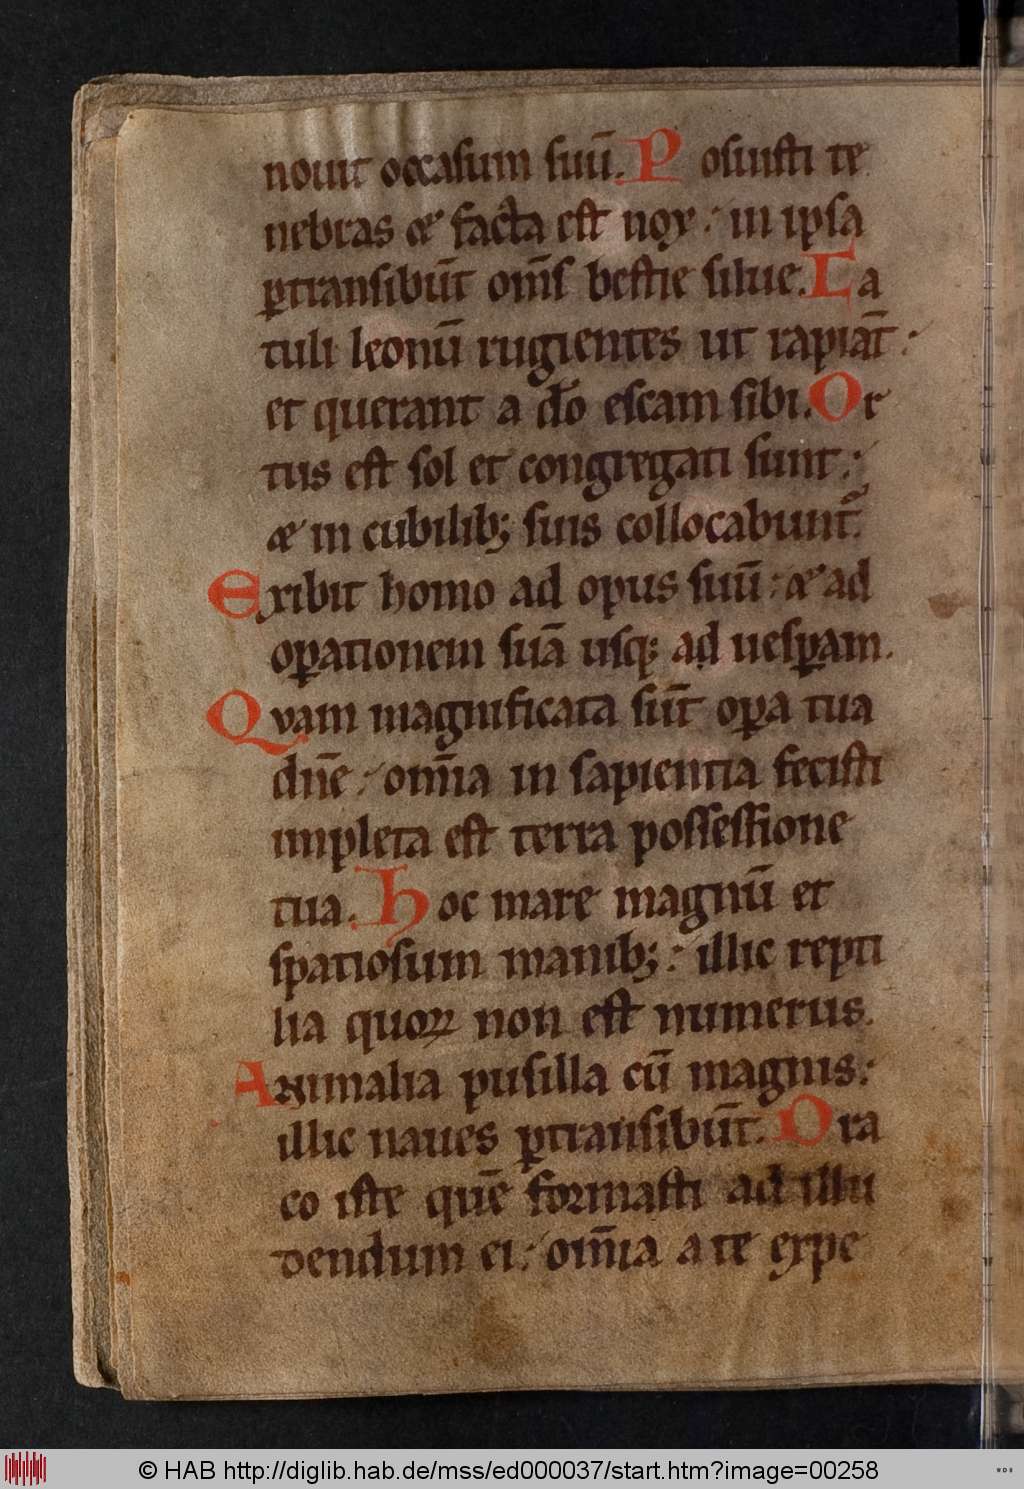 nouit occasum suū. Posuisti te
nebras & facta est nox : in ipsa
ꝑtransibūt om̄s bestie silue. Ca
tuli leonū rugientes ut rapiāt :
et querant a dō escam sibi. Or
tus est sol et congregati sunt :
& in cubilib; suis collocabunt᷑.
Exibit homo ad opus suū : & ad
oꝑationem suā usq; ad uesꝑam.
Qvam magnificata sūt oꝑa tua
dn̄e : om̄ia in sapientia fecisti
impleta est terra possessione
tua. Hoc mare magnū et
spatiosum manib; : illic repti
lia quoꝝ non est numerus.
Animalia pusilla cū magnis :
illic naues ꝑtransibūt. Dra
co iste quē formasti ad illu
dendum ei : om̄ia a te expe
© HAB http://diglib.hab.de/mss/ed000037/start.htm?image=00258